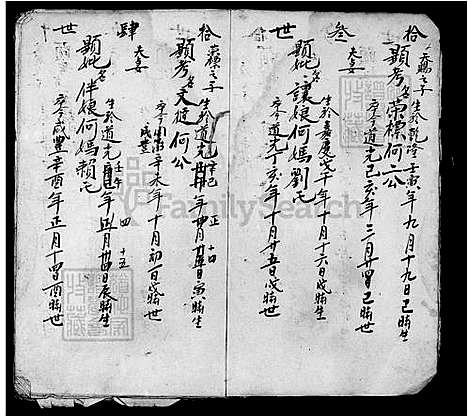 拾叁世
喬之子
顯考名榮標何二公
生於乾隆壬寅年九月十九日巳時生
卒於道光己亥年三月廿四日巳時世
夫妻
顯妣名讓娘何媽劉氏
生於嘉慶戊午年十月十六日戌時生
卒於道光丁亥年十月廿五日戌時世
拾肆世
榮標之子
顯考名文 何公
生於道光辛巳年正月十四日寅時生
卒於同治辛未年十月初一日戌時世
咸豐
夫妻
顯妣名伴娘何媽賴氏
生於道光壬午年四月十五日辰時生
卒於咸豐辛酉年正月十四日酉時世
FamilySearch